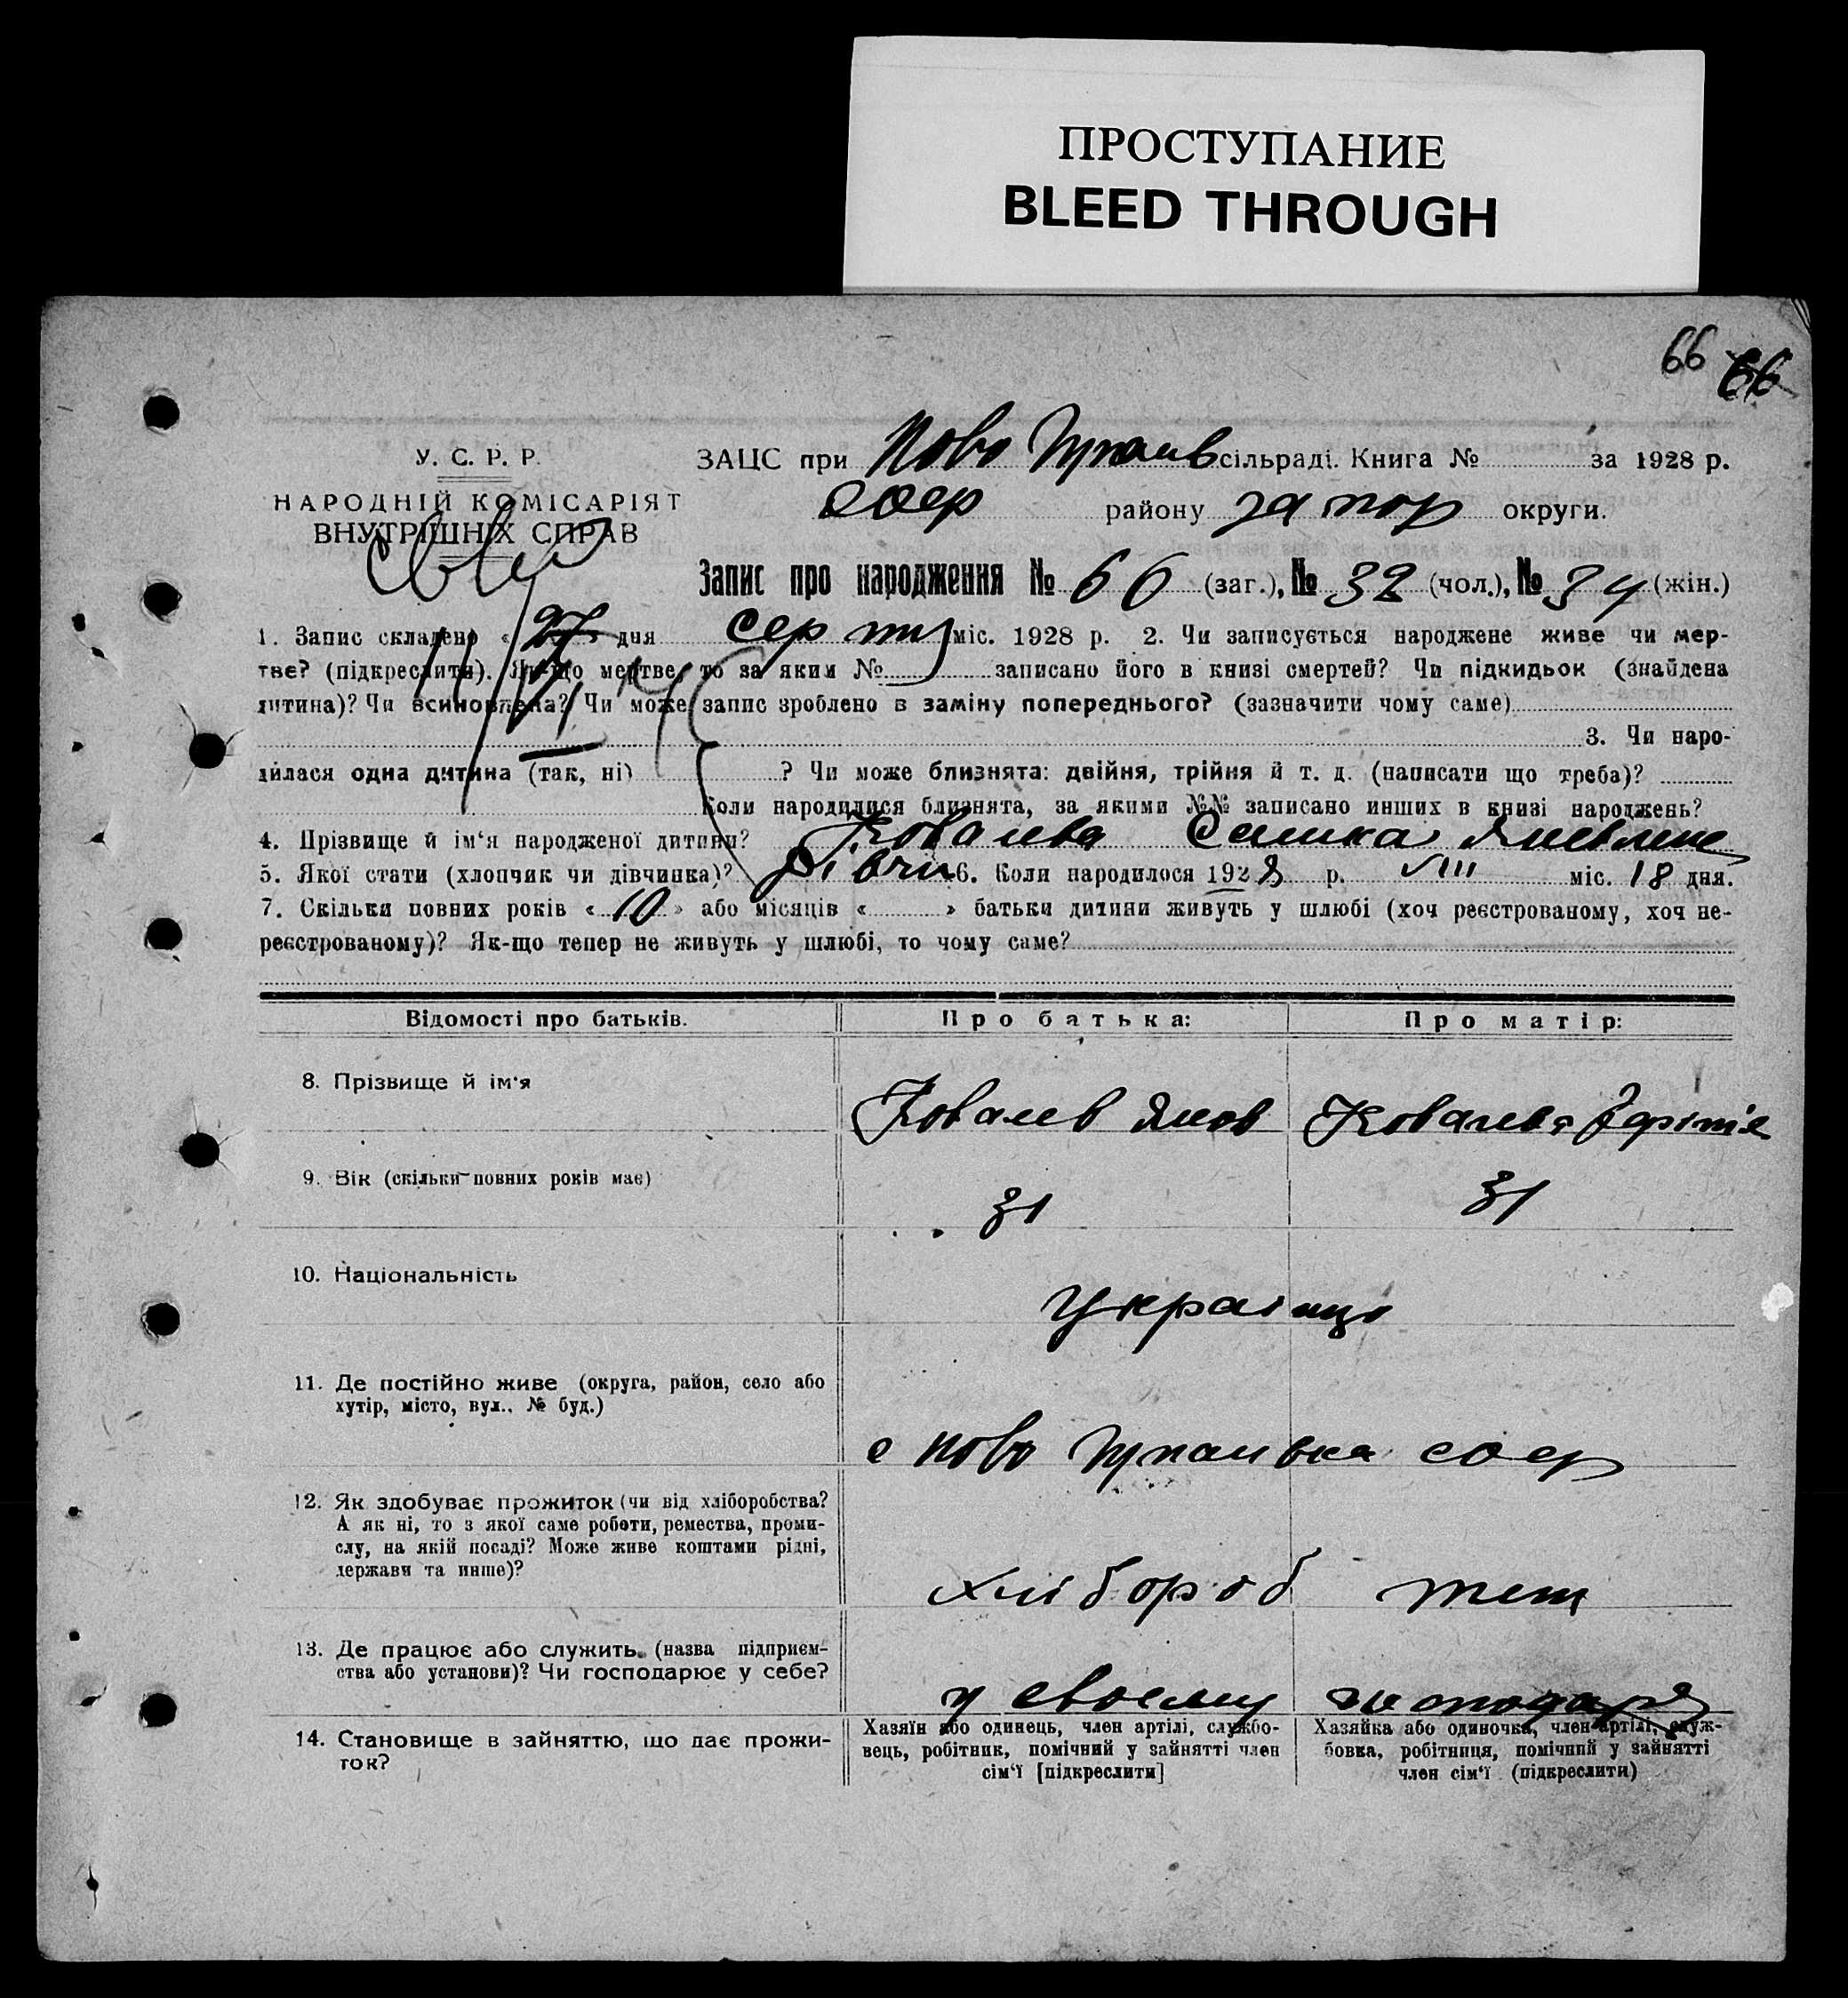 ПРОСТУПАНИЕ
BLEED THROUGH
66 66
У. С. Р. Р.
НАРОДНІЙ КОМІСАРІЯТ
ВНУТРІШНІХ СПРАВ
ЗАЦС при Ново сільраді. Книга № за 1928 р.
району запор округи.
Запис про народження № 66 (заг.), № 32 (чол.), № 34 (жін.)
1. Запис складено « 27 » дня серпня міс. 1928 р. 2. Чи записується народжене живе чи мер-
тве? (підкреслити). Як-що мертве, то за яким № записано його в книзі смертей? Чи підкидьок (знайдена
дитина)? Чи всиновлена? Чи може запис зроблено в заміну попереднього? (зазначити чому саме)
3. Чи наро-
дилася одна дитина (так, ні) ? Чи може близнята: двійня, трійня й т. д. (написати що треба)?
Коли народилися близнята, за якими №№ записано инших в книзі народжень?
4. Прізвище й ім‘я народженої дитини? Ковалева
5. Якої стати (хлопчик чи дівчинка)? дівчи 6. Коли народилося 1928 р. VIII міс. 18 дня.
7. Скільки повних років « 10 » або місяців « » батьки дитини живуть у шлюбі (хоч реєстрованому, хоч не-
реєстрованому)? Як-що тепер не живуть у шлюбі, то чому саме?
Відомості про батьків. Про батька: Про матір:
8. Прізвище й ім‘я Ковалев Яков Ковалева
9. Вік (скільки повних років має) 31 31
10. Національність Українці
11. Де постійно живе (округа, район, село або
хутір, місто, вул., № буд.)
с Ново
12. Як здобуває прожиток (чи від хліборобства?
А як ні, то з якої саме роботи, ремества, проми-
слу, на якій посаді? Може живе коштами рідні,
держави та инше)?
хлібороб теж
13. Де працює або служить (назва підприєм-
ства або установи)? Чи господарює у себе?
у своему господарс
14. Становище в зайняттю, що дає прожи-
ток?
Хазяїн або одинець, член артілі, службо-
вець, робітник, помічний у зайнятті член
сім‘ї [підкреслити]
Хазяйка або одиночка, член артілі, служ-
бовка, робітниця, помічний у зайнятті
член сім‘ї (підкреслити)